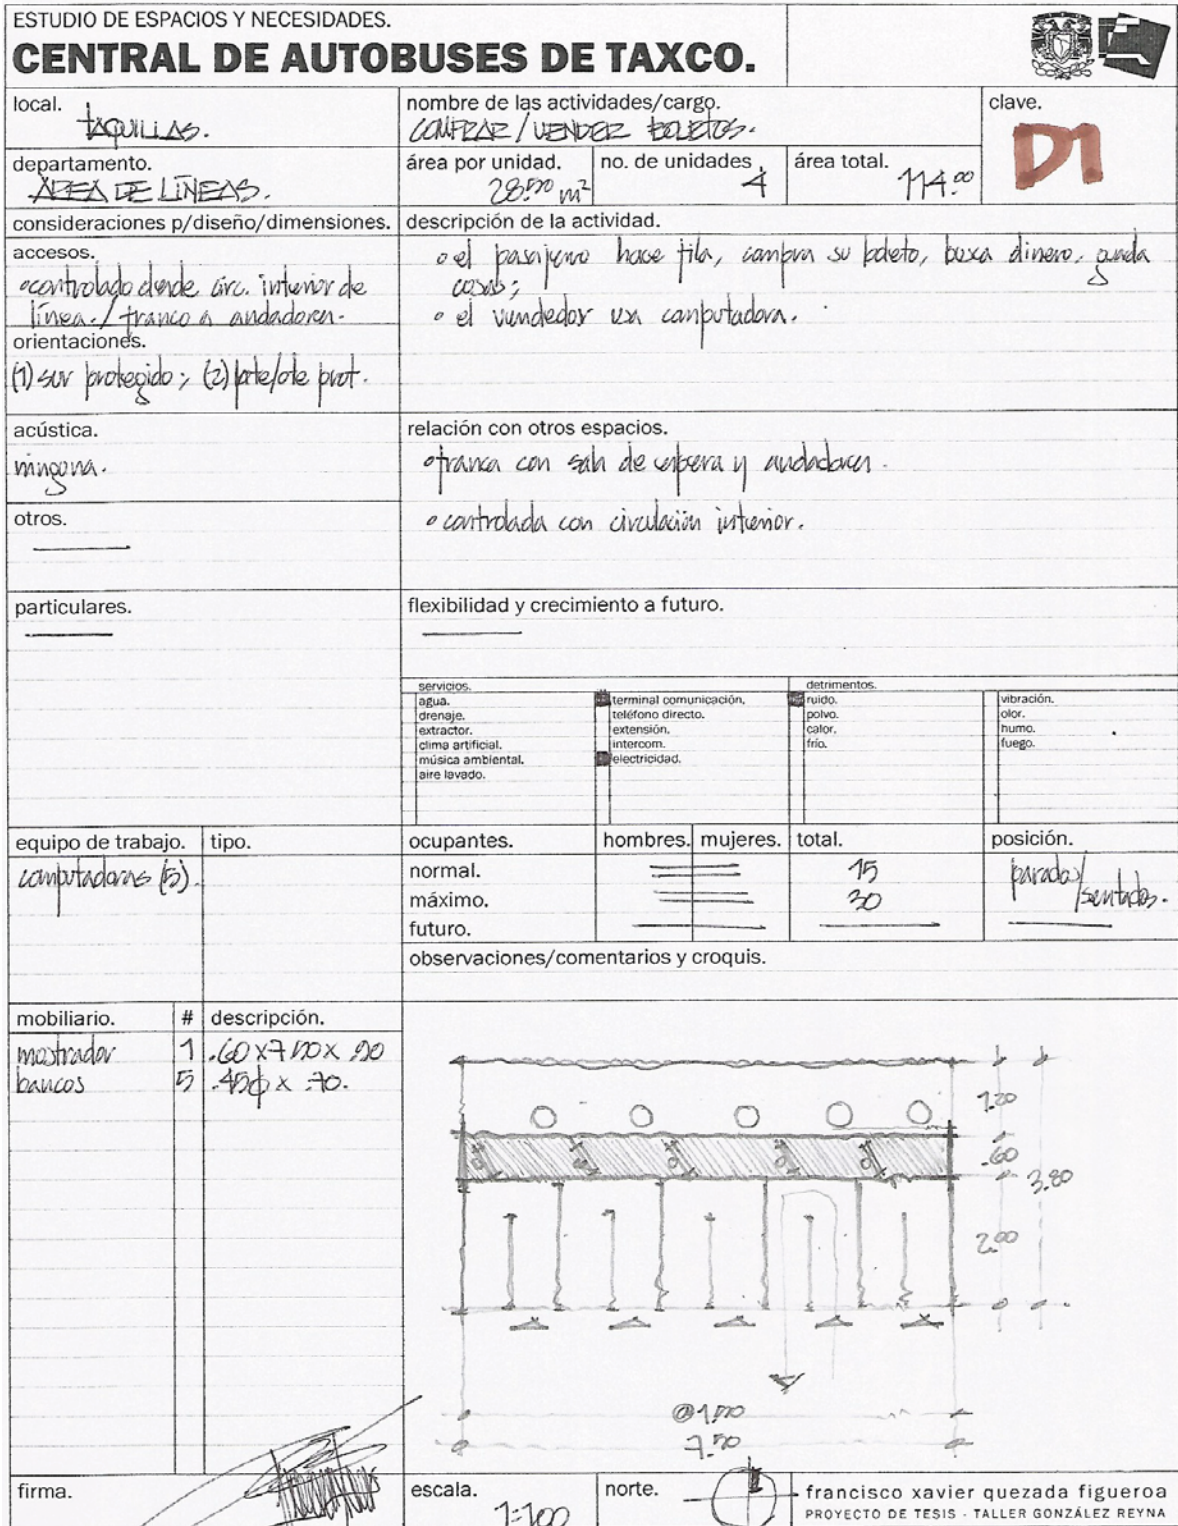 ESTUDIO DE ESPACIOS Y NECESIDADES.
CENTRAL DE AUTOBUSES DE TAXCO.
local.
TAQUILLAS.
nombre de las actividades/cargo.
COMPRAR/VENDER BOLETOS.
clave.
D1
departamento.
ÁREA DE LÍNEAS.
área por unidad.
28.50 m²
no. de unidades
4
área total.
114.00
consideraciones p/diseño/dimensiones.
descripción de la actividad.
accesos.
controlado desde circ. interior de
línea./franco a andadores.
o el pasajero hace fila, compra su boleto, busca dinero, guarda
cosas;
o el vendedor usa computadora.
orientaciones.
(1) sur protegido; (2) pte/ote prot.
acústica.
ninguna.
relación con otros espacios.
o franca con sala de espera y andadores.
o controlada con circulación interior.
otros.
particulares.
flexibilidad y crecimiento a futuro.
servicios.
agua.
drenaje.
extractor.
clima artificial.
música ambiental.
aire lavado.
terminal comunicación.
teléfono directo.
extensión.
intercom.
electricidad.
detrimentos.
ruido.
polvo.
calor.
frío.
vibración.
olor.
humo.
fuego.
equipo de trabajo. tipo.
computadoras (5).
ocupantes. hombres. mujeres. total. posición.
normal. 15 parados/sentados.
máximo. 30
futuro.
observaciones/comentarios y croquis.
mobiliario. # descripción.
mostrador 1 .60 x 7.50 x .90
bancos 5 .45φ x .70.
1.20
.60
3.80
2.00
@1.50
7.50
firma.
escala.
1:100
norte.
francisco xavier quezada figueroa
PROYECTO DE TESIS - TALLER GONZÁLEZ REYNA